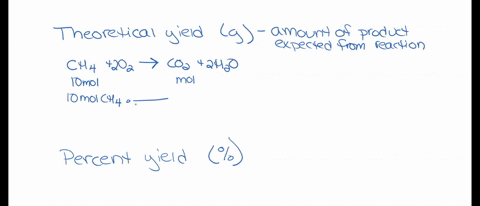 Theoretical yield (g) – amount of product
expected from reaction
CH4 + 2O2 → CO2 + 2H2O
10mol mol
10molCH4 • ——
Percent yield (%)